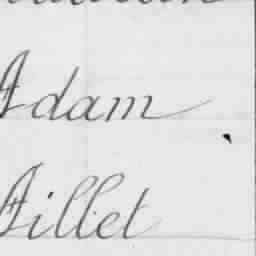 Adam
Aillet